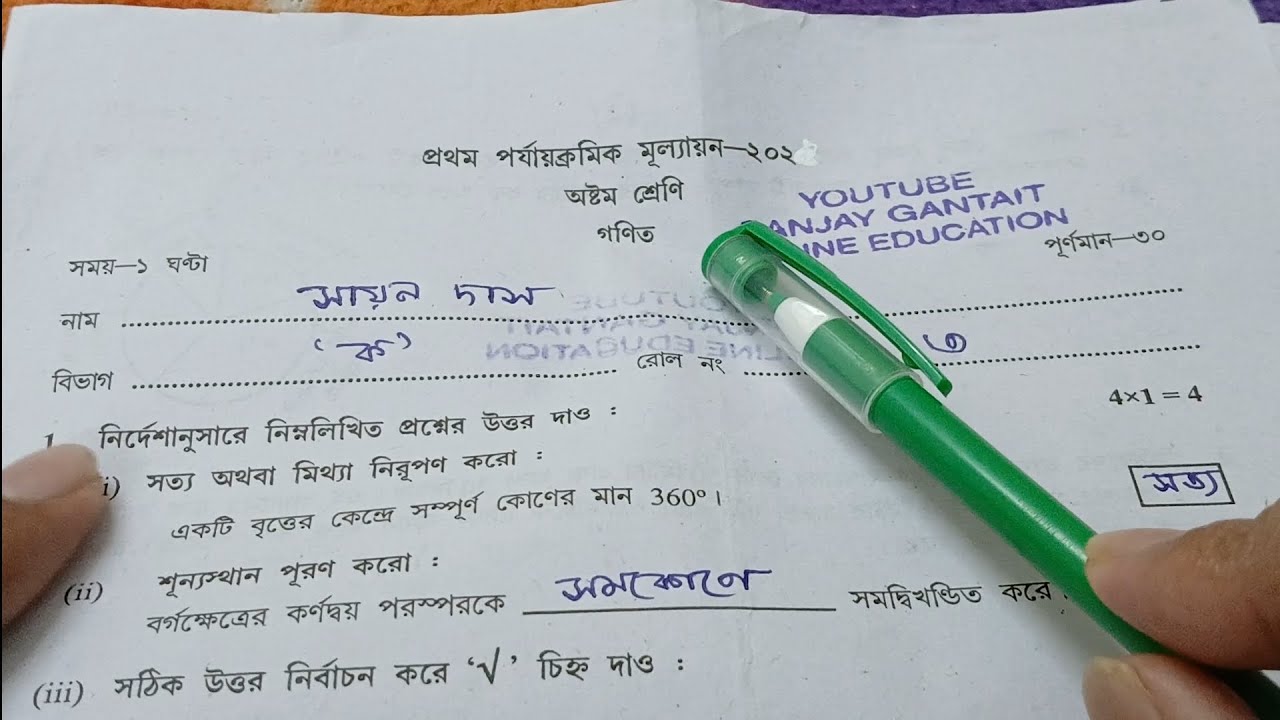 প্রথম পর্যায়ক্রমিক মূল্যায়ন—২০২
অষ্টম শ্রেণি
গণিত
YOUTUBE
SANJAY GANTAIT
LINE EDUCATION
সময়—১ ঘণ্টা
পূর্ণমান—৩০
নাম সায়ন দাস
বিভাগ 'ক' রোল নং ৩
4×1 = 4
1. নির্দেশানুসারে নিম্নলিখিত প্রশ্নের উত্তর দাও :
i) সত্য অথবা মিথ্যা নিরূপণ করো :
একটি বৃত্তের কেন্দ্রে সম্পূর্ণ কোণের মান 360°। সত্য
(ii) শূন্যস্থান পূরণ করো :
বর্গক্ষেত্রের কর্ণদ্বয় পরস্পরকে সমকোণে সমদ্বিখণ্ডিত করে
(iii) সঠিক উত্তর নির্বাচন করে '√' চিহ্ন দাও :